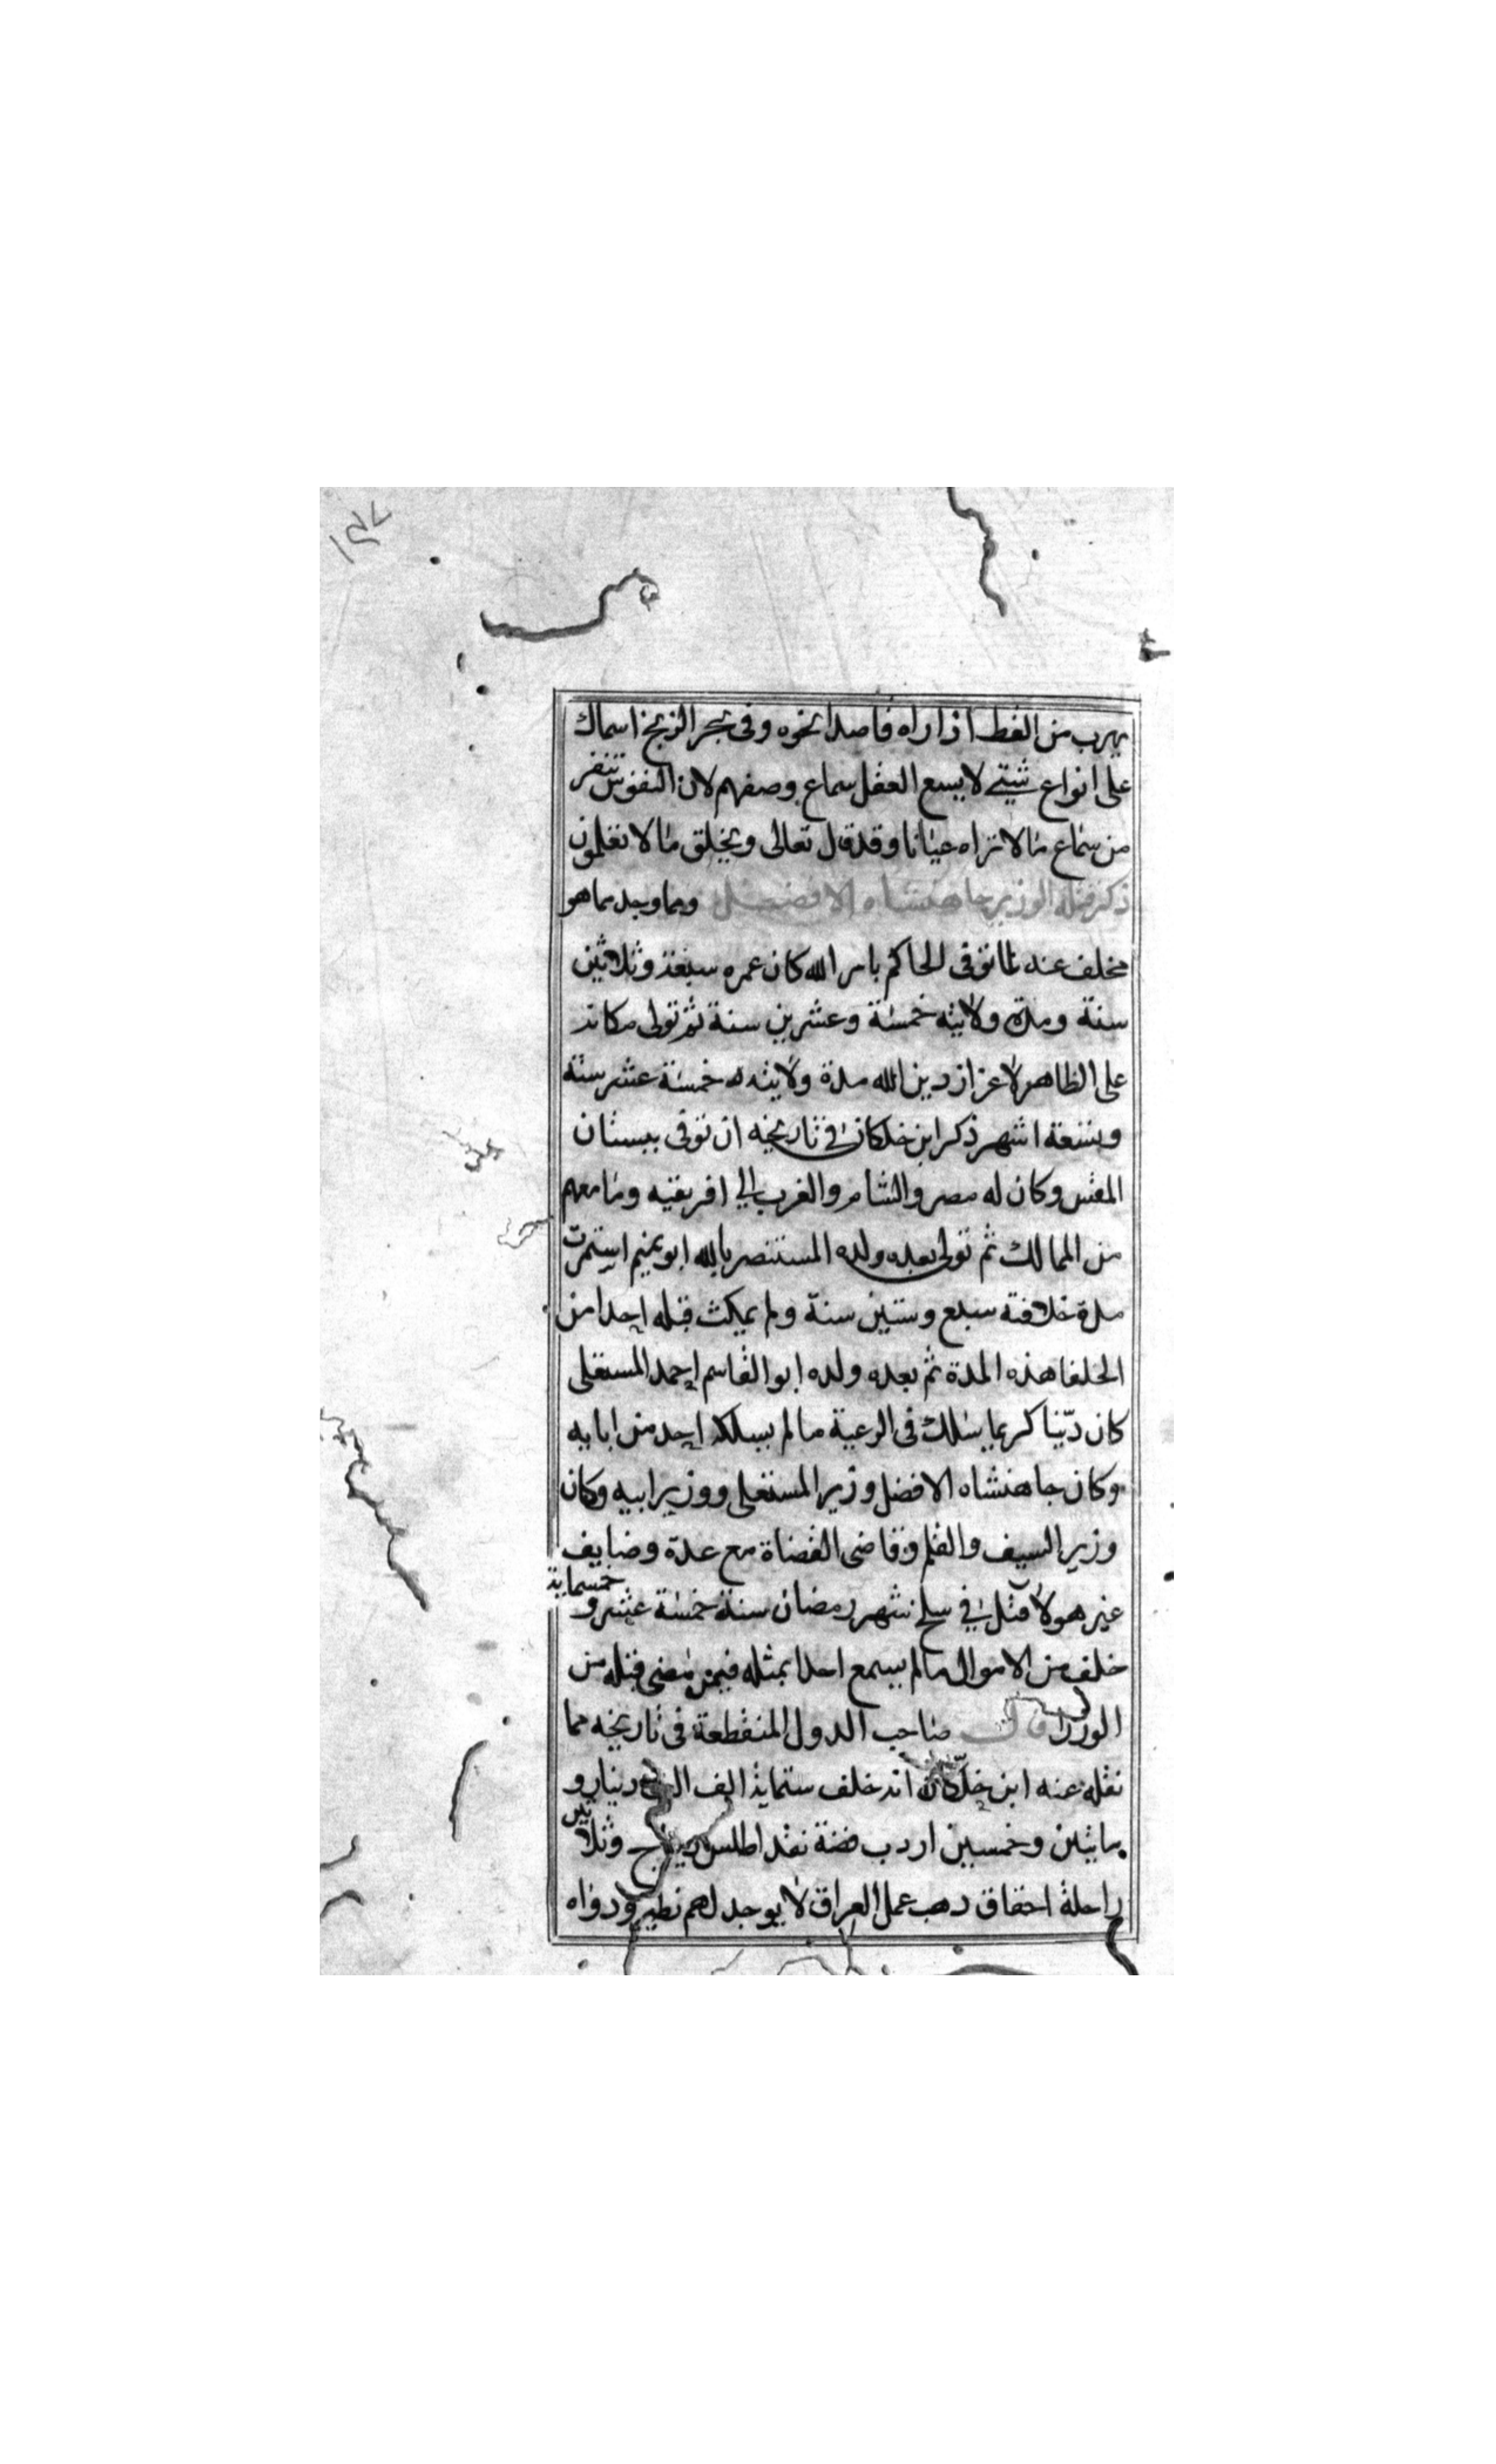 ١٤٧
يهرب من القط اذا راه قاصدا نحوه وفى بحر الزنج اسماك
على انواع شتى لا يسع العقل سماع وصفهم لان النفوس تنفر
من سماع ما لا تراه عيانا وقد قال تعالى ويخلق ما لا تعلمون
ذكر قتله الوزير جاهنشاه الافضل ومما وجد مما هو
مخلف عنه لما توفى الحاكم بامر الله كان عمره سبعة وثلاثين
سنة ومدة ولايته خمسة وعشرين سنة ثم تولى مكانه
على الظاهر لاعزاز دين الله مدة ولايته خمسة عشر سنة
وتسعة اشهر ذكر ابن خلكان في تاريخه ان توفى ببستان
المقس وكان له مصر والشام والغرب الي افريقيه وما معهم
من الممالك ثم تولى بعده ولده المستنصر بالله ابو تميم استمرت
مدة خلافته سبع وستين سنة ولم يمكث قبله احدا من
الخلفا هذه المدة ثم بعده ولده ابو القاسم احمد المستعلى
كان دينا كريما سلك فى الرعية ما لم يسلكه احد من ابايه
وكان جاهنشاه الافضل وزير المستعلى ووزير ابيه وكان
وزير السيف والقلم وقاضى القضاة مع عدة وضايف
غير هولا قتل في سلخ شهر رمضان سنة خمسة عشر وخمسماية
خلف من الاموال ما لم يسمع احدا بمثله فيمن مضى قبله من
الوزرا قال صاحب الدول المنقطعة فى تاريخه مما
نقله عنه ابن خلكان انه خلف ستماية الف الف دينار و
مايتين وخمسين اردب فضة نقد اطلس ديباج وثلاثين
راحلة احقاق دهب عمل العراق لا يوجد لهم نظير ودواه